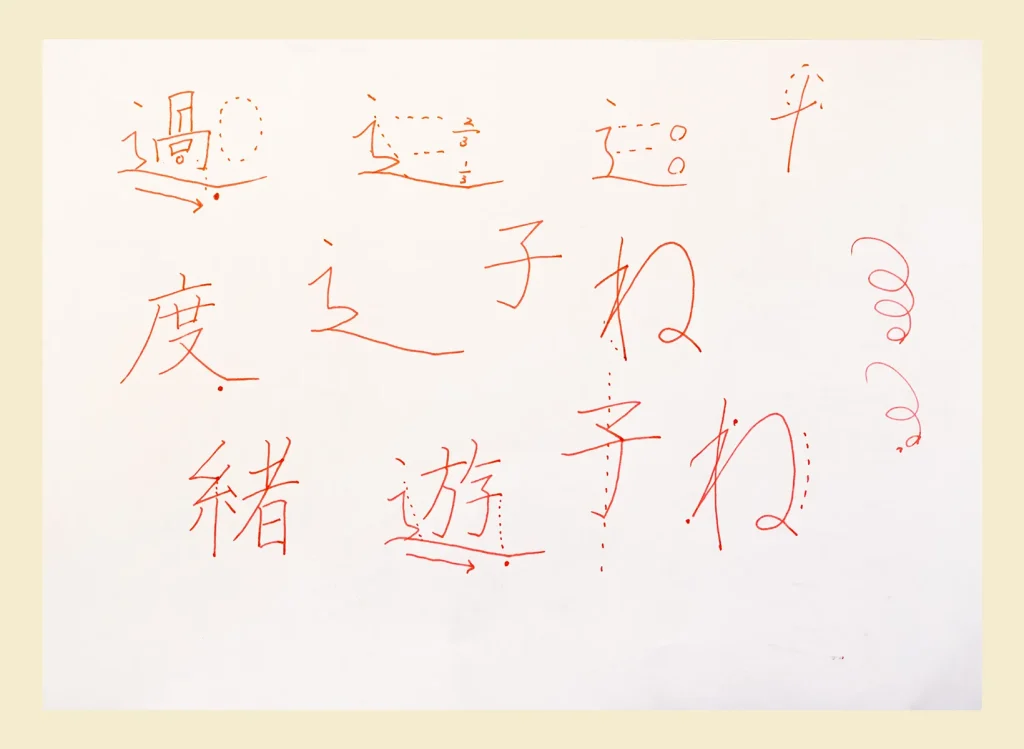 過 辶 2/3 1/3 辶
度 辶 子 ね
緒 遊 子 ね